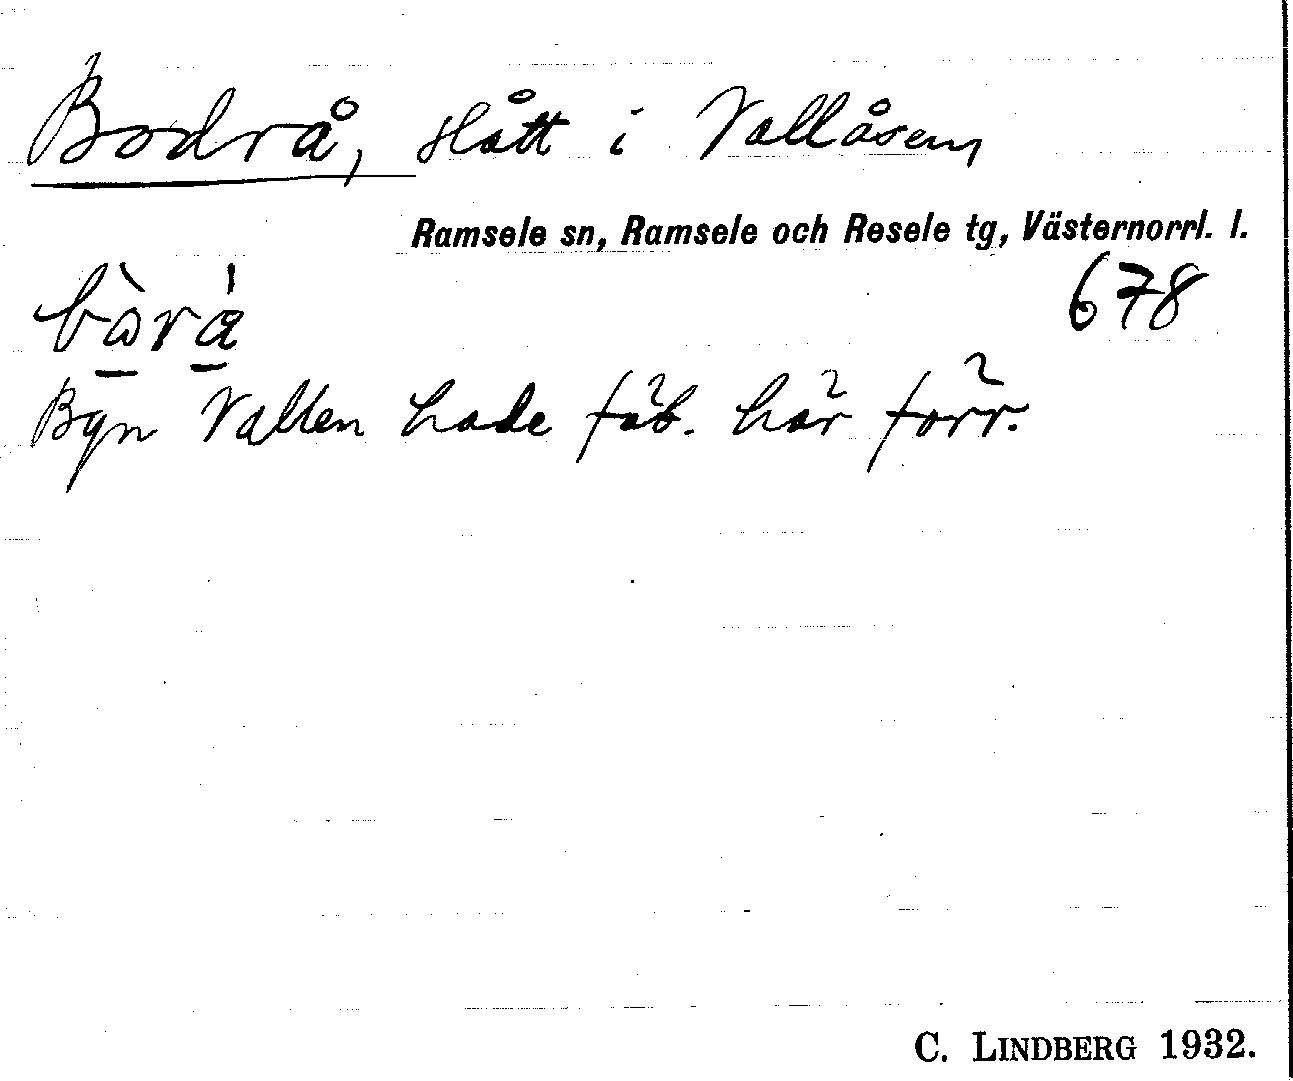 Bodrå, slått i Vallåsen,
Ramsele sn, Ramsele och Resele tg, Västernorrl. l.
678
Byn Vallen hade fäb. här förr.
C. LINDBERG 1932.